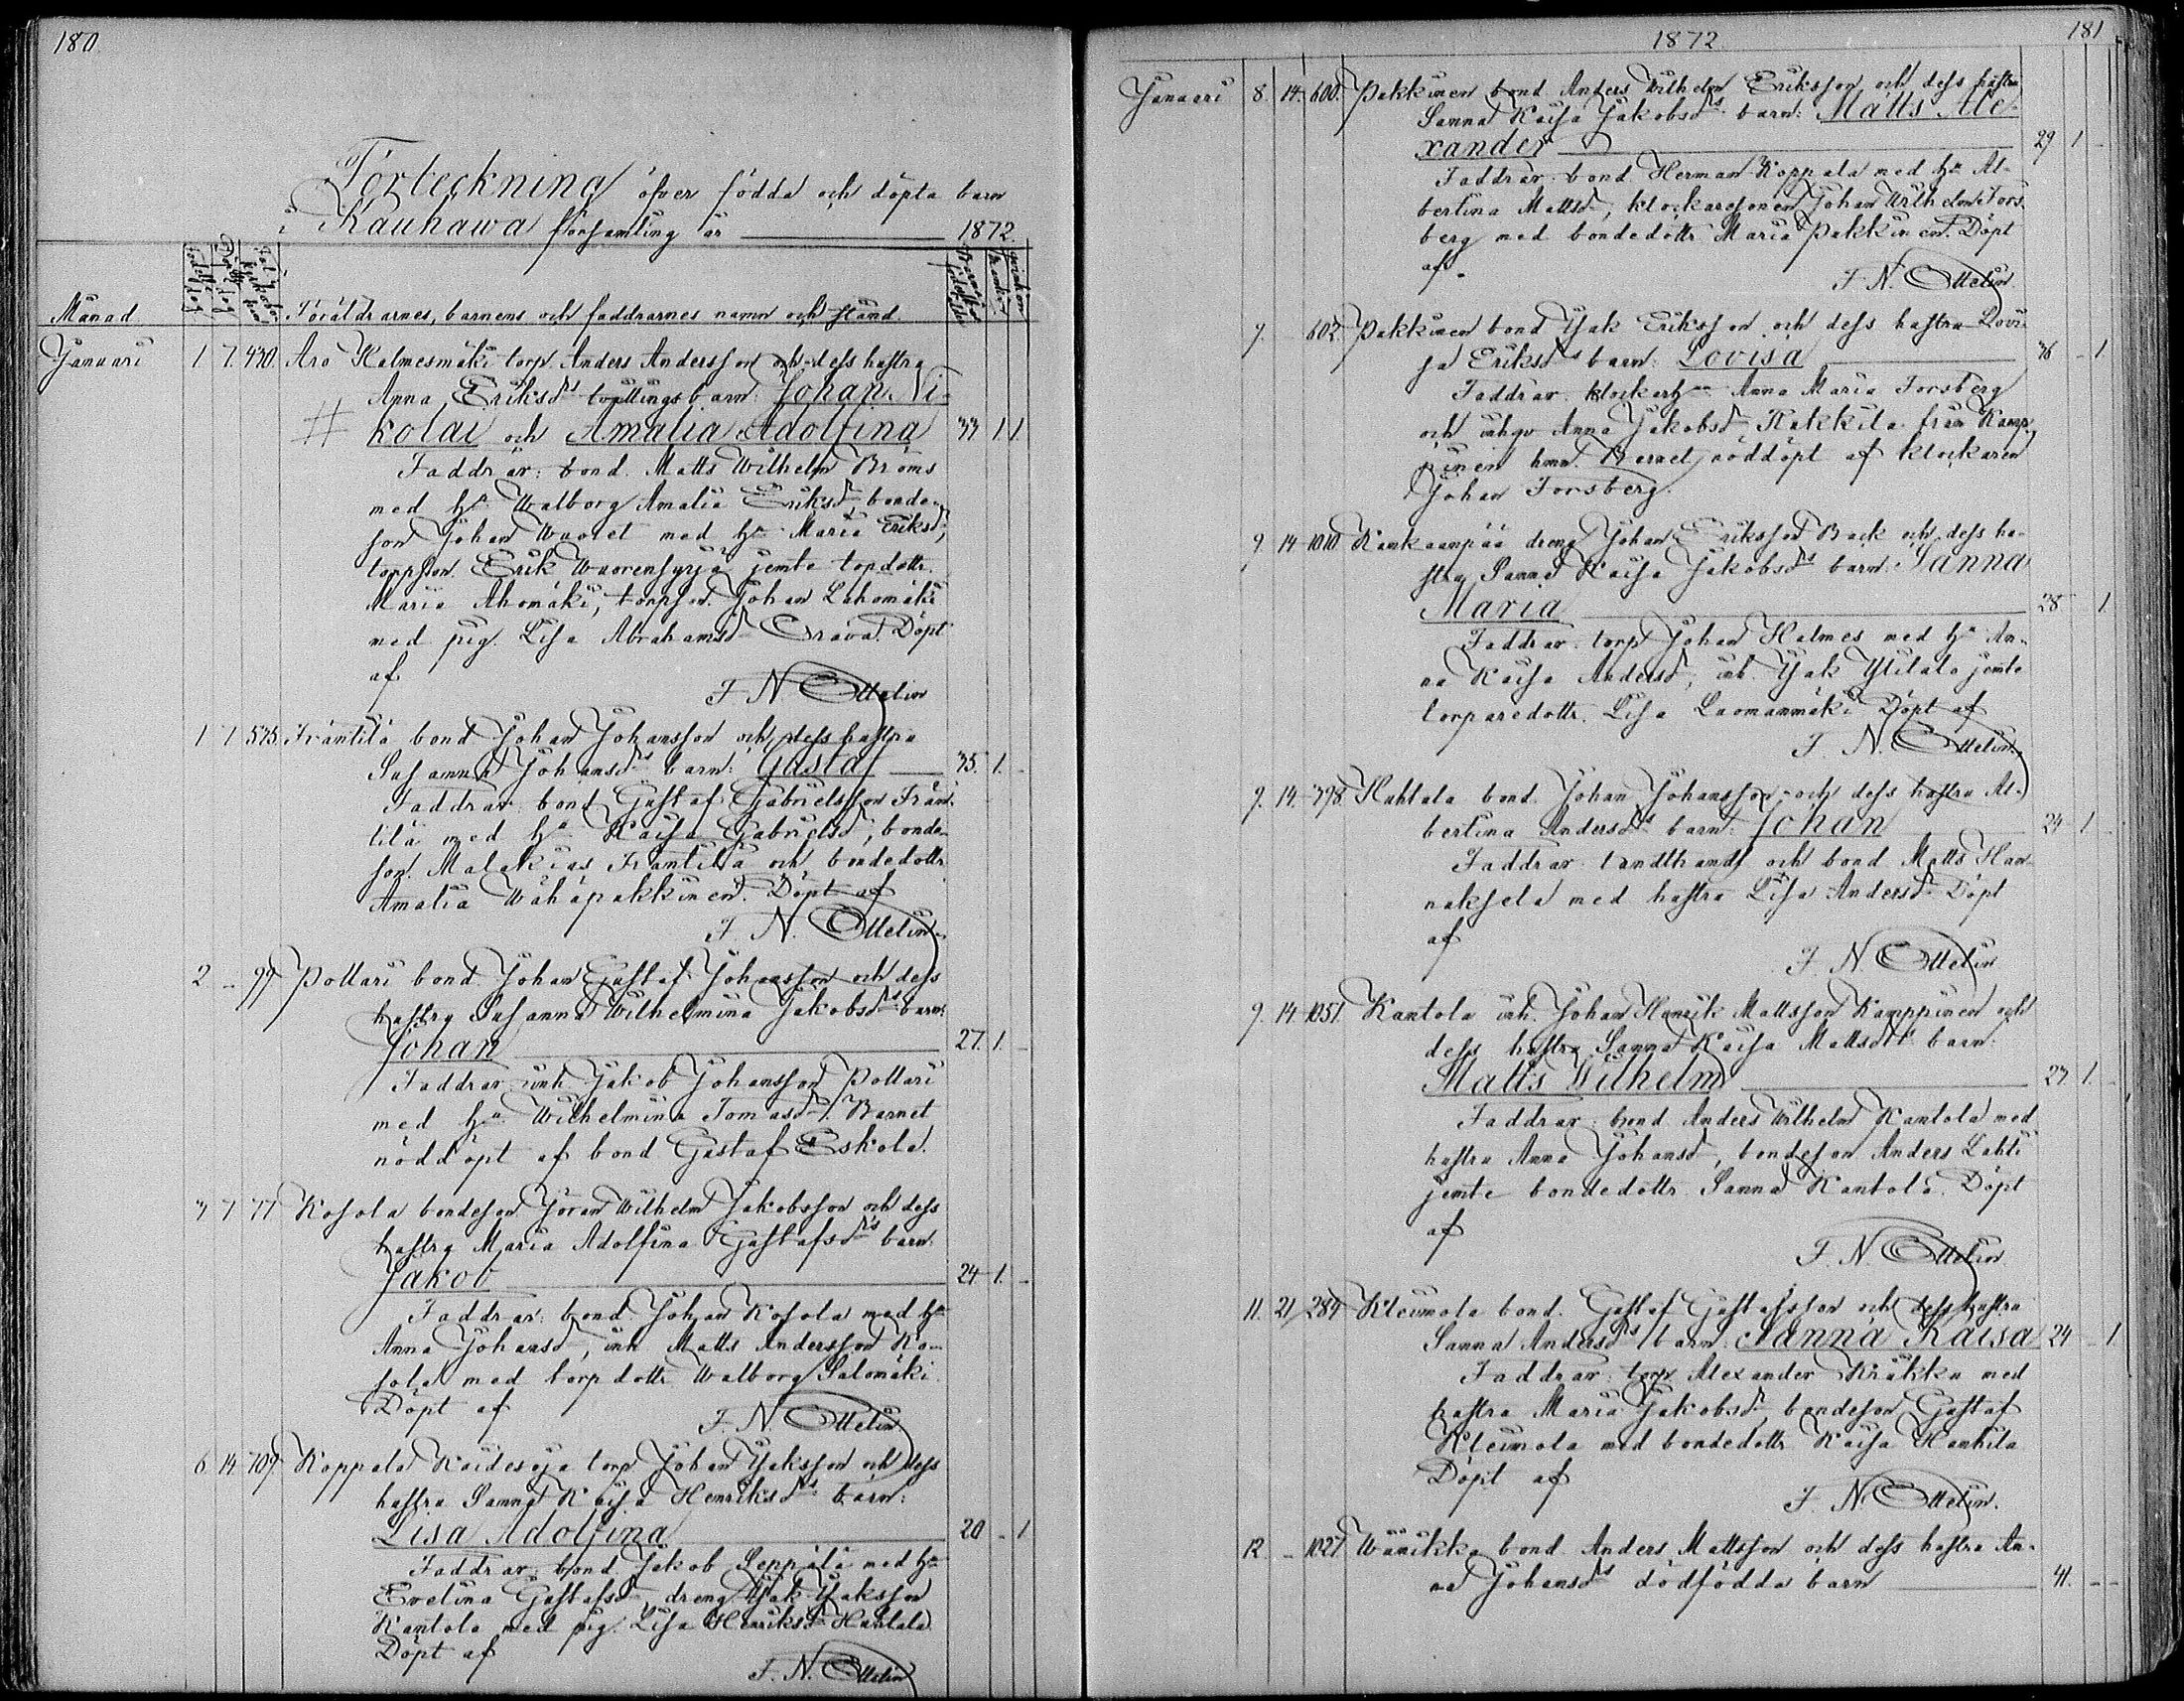 180.
Förteckning öfver födda och döpta barn
i Kauhawa församling år 1872.
Månad Föräldrarnes, barnens och faddrarnes namn och stånd
Januari 1 7. 430. Aro Halmesmäki torp. Anders Andersson och dess hustru
Anna Eriksdrs tvillingsbarn: Johan Ni-
# kolai och Amalia Adolfina 33 1. 1.
Faddrar: bond. Matts Wilhelm Bröms
med hu Walborg Amalia Eriksdr, bonde-
son Johan med hu Maria Eriksdr,
torpson Erik jemte torpdottr.
Maria Ahomäki, torpson. Johan
med pig. Lisa Abrahamsdr Döpt
af
F. N. Ottelin
1 7 575. Främtilä bond Johan Johansson och dess hustru
Susanna Johansdrs barn: Gustaf 35. 1. -
Faddrar: bond Gustaf Gabrielsson Främ-
tilä med hu Kaisa Gabrielsdr, bonde-
son. Malakias Främtilä och bondedottr.
Amalia Wähäpakkinen. Döpt af
F. N. Ottelin.
2 - 99 Pollari bond. Johan Gustaf Johansson och dess
hustru Susanna Wilhelmina Jakobsdrs barn:
Johan 27. 1. -
Faddrar: inh. Jakob Johansson Pollari
med hu Wilhelmina Tomasdr. Barnet
nöddöpt af bond Gustaf Eskola.
3 7 77. Kosola bondeson Jöran Wilhelm Jakobsson och dess
hustru Maria Adolfina Gustafsdrs barn:
Jakob 24 1. -
Faddrar: bond. Johan Kosola med hu
Anna Johansdr, inh. Matts Andersson Ko-
sola med torpdottr. Walborg Salomäki.
Döpt af
F. N. Ottelin
6 14. 709. Koppala Kaidesoja torp. Johan Jaksson och dess
hustru Sanna Kaisa Henriksdrs barn:
Lisa Adolfina 20 - 1
Faddrar: bond. Jakob Seppälä med hu
Evelina Gustafsdr, dreng Isak Isaksson
Kantola med pig. Lisa Henriksdr Hahtala
Döpt af
F. N. Ottelin
1872. 181
Januari 8. 14. 600. Pakkinen bond Anders Wilhelm Eriksson och dess hustru
Sanna Kaisa Jakobsdrs barn: Matts Ale-
xander 29 1 -
Faddrar: bond Herman Koppala med hu Al-
bertina Mattsdr, klockaresonen Johan Wilhelm Fors-
berg med bondedottr Maria Pakkinen. Döpt
af
F. N. Ottelin
9. - 602. Pakkinen bond Isak Eriksson och dess hustru Lovi-
sa Eriksdrs barn: Lovisa 36 - 1.
Faddrar: Anna Maria Forsberg
och Anna Jakobsdr Kakkila från Kamp-
pinen hmn. Barnet nöddöpt af klockaren
Johan Forsberg.
9 14 1010 Kankaanpää dreng Johan Eriksson Back och dess hu-
stru Sanna Kaisa Jakobsdrs barn: Sanna
Maria 28 1.
Faddrar: torp Johan Halmes med hu An-
na Kaisa Andersdr, inh. Isak Ylitalo jemte
torparedottr. Lisa Luomanmäki Döpt af
F. N. Ottelin.
9. 14. 398. Hahtala bond. Johan Johansson och dess hustru Al-
bertina Andersdrs barn: Johan 24 1 -
Faddrar: och bond Matts Han-
naksela med hustru Lisa Andersdr Döpt
af
F. N. Ottelin
9. 14 1051. Kantola inh. Johan Henrik Mattsson Kamppinen och
dess hustru Sanna Kaisa Mattsdrs barn:
Matts Wilhelm 23 1. -
Faddrar: bond Anders Wilhelm Kantola med
hustru Anna Johansdr, bondeson Anders Lahti
jemte bondedottr. Sanna Kantola. Döpt
af
F. N. Ottelin
11. 21 284 Kleimola bond. Gustaf Gustafsson och dess hustru
Sanna Andersdrs barn: Sanna Kaisa 24 - 1.
Faddrar: torp. Alexander Kräkku med
hustru Maria Jakobsdr, bondeson Gustaf
Kleimola med bondedottr Kaisa Hanhila
Döpt af
F. N. Ottelin.
12. - 1027 Wäinikka bond Anders Mattsson och dess hustru An-
na Johansdrs dödfödda barn 41. - -